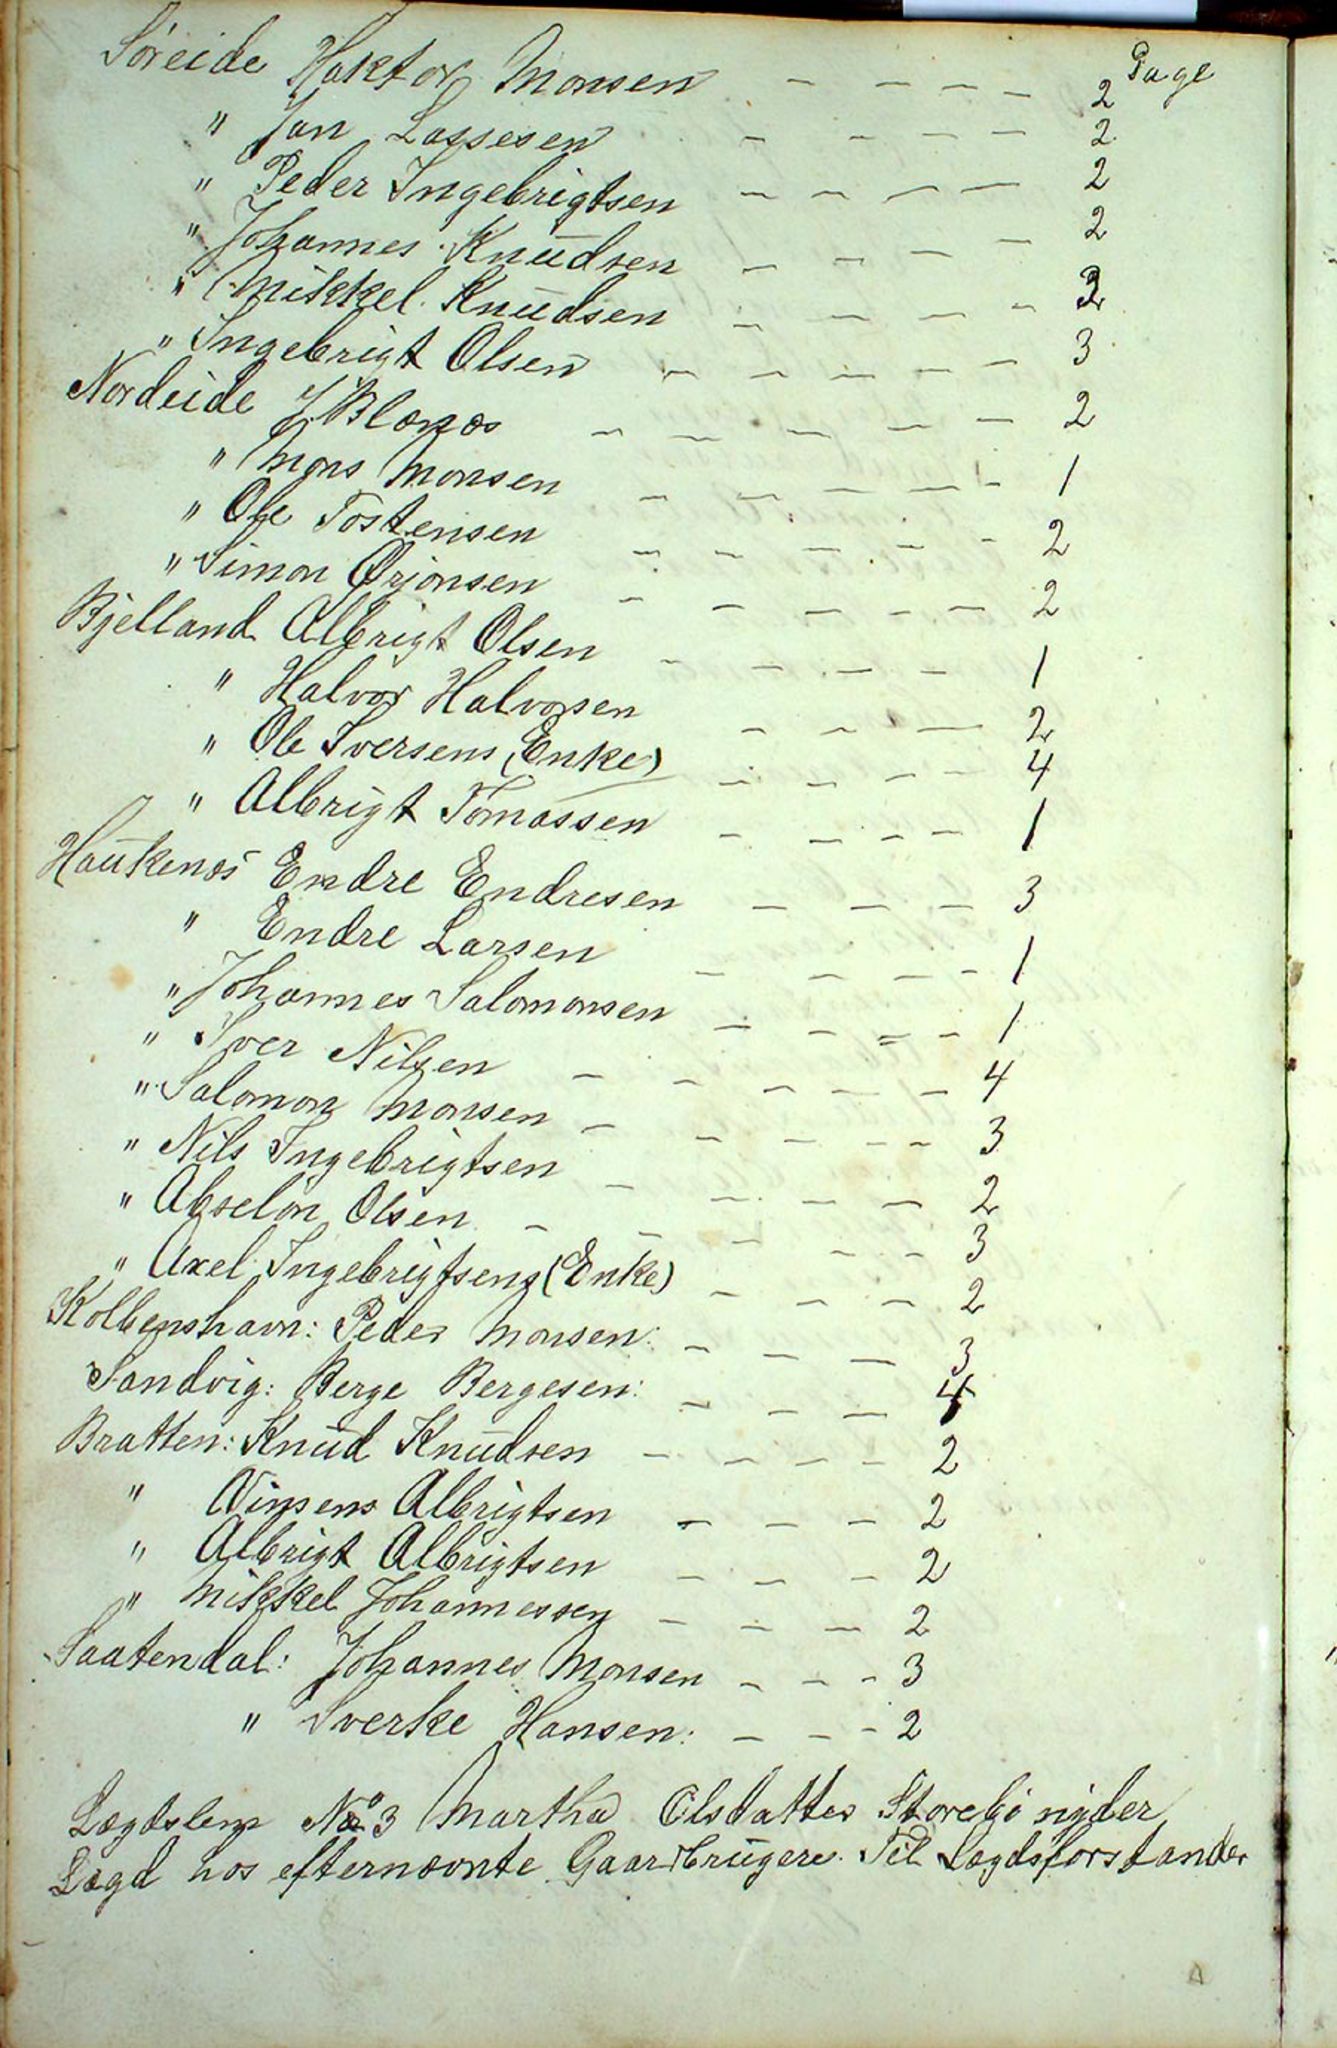 Page
Söreide Haktor Monsen — — — — 2
" Jan Lassesen — — — — 2
" Peder Ingebrigtsen — — — — 2
" Johannes Knudsen — — — — 2
" Mikkel Knudsen — — — — 2
" Ingebrigt Olsen — — — — — 3
Nordeide J Blonæs — — — — — 2
" Mons Monsen — — — — — 1
" Ole Tostensen — — — — — 2
" Simon Ørjansen — — — — — 2
Bjelland Albrigt Olsen — — — — 1
" Halvor Halvorsen — — — — 2
" Ole Iversens (Enke) — — — — 4
" Albrigt Tomassen — — — — 1
Haukenæs Endre Endresen — — — 3
" Endre Larsen — — — — 1
" Johannes Salomonsen — — — — 1
" Iver Nilsen — — — — — 4
" Salomon Monsen — — — — — 3
" Nils Ingebrigtsen — — — — 2
" Abselon Olsen — — — — — 3
" Axel Ingebrigtsens (Enke) — — — 2
Kolbenshavn: Peder Monsen: — — — 3
Sandvig: Berge Bergesen: — — — 4
Bratten: Knud Knudsen — — — — 2
" Vinsens Albrigtsen — — — 2
" Albrigt Albrigtsen — — — 2
" Mikkel Johannessen — — — 2
Saatendal: Johannes Monsen — — — 3
" Sverke Hansen: — — — 2
Lægdslem No 3 Martha Olsdatter Storebö nyder
Lægd hos efternævnte Gaardbrugere. Til Lægdsforstander